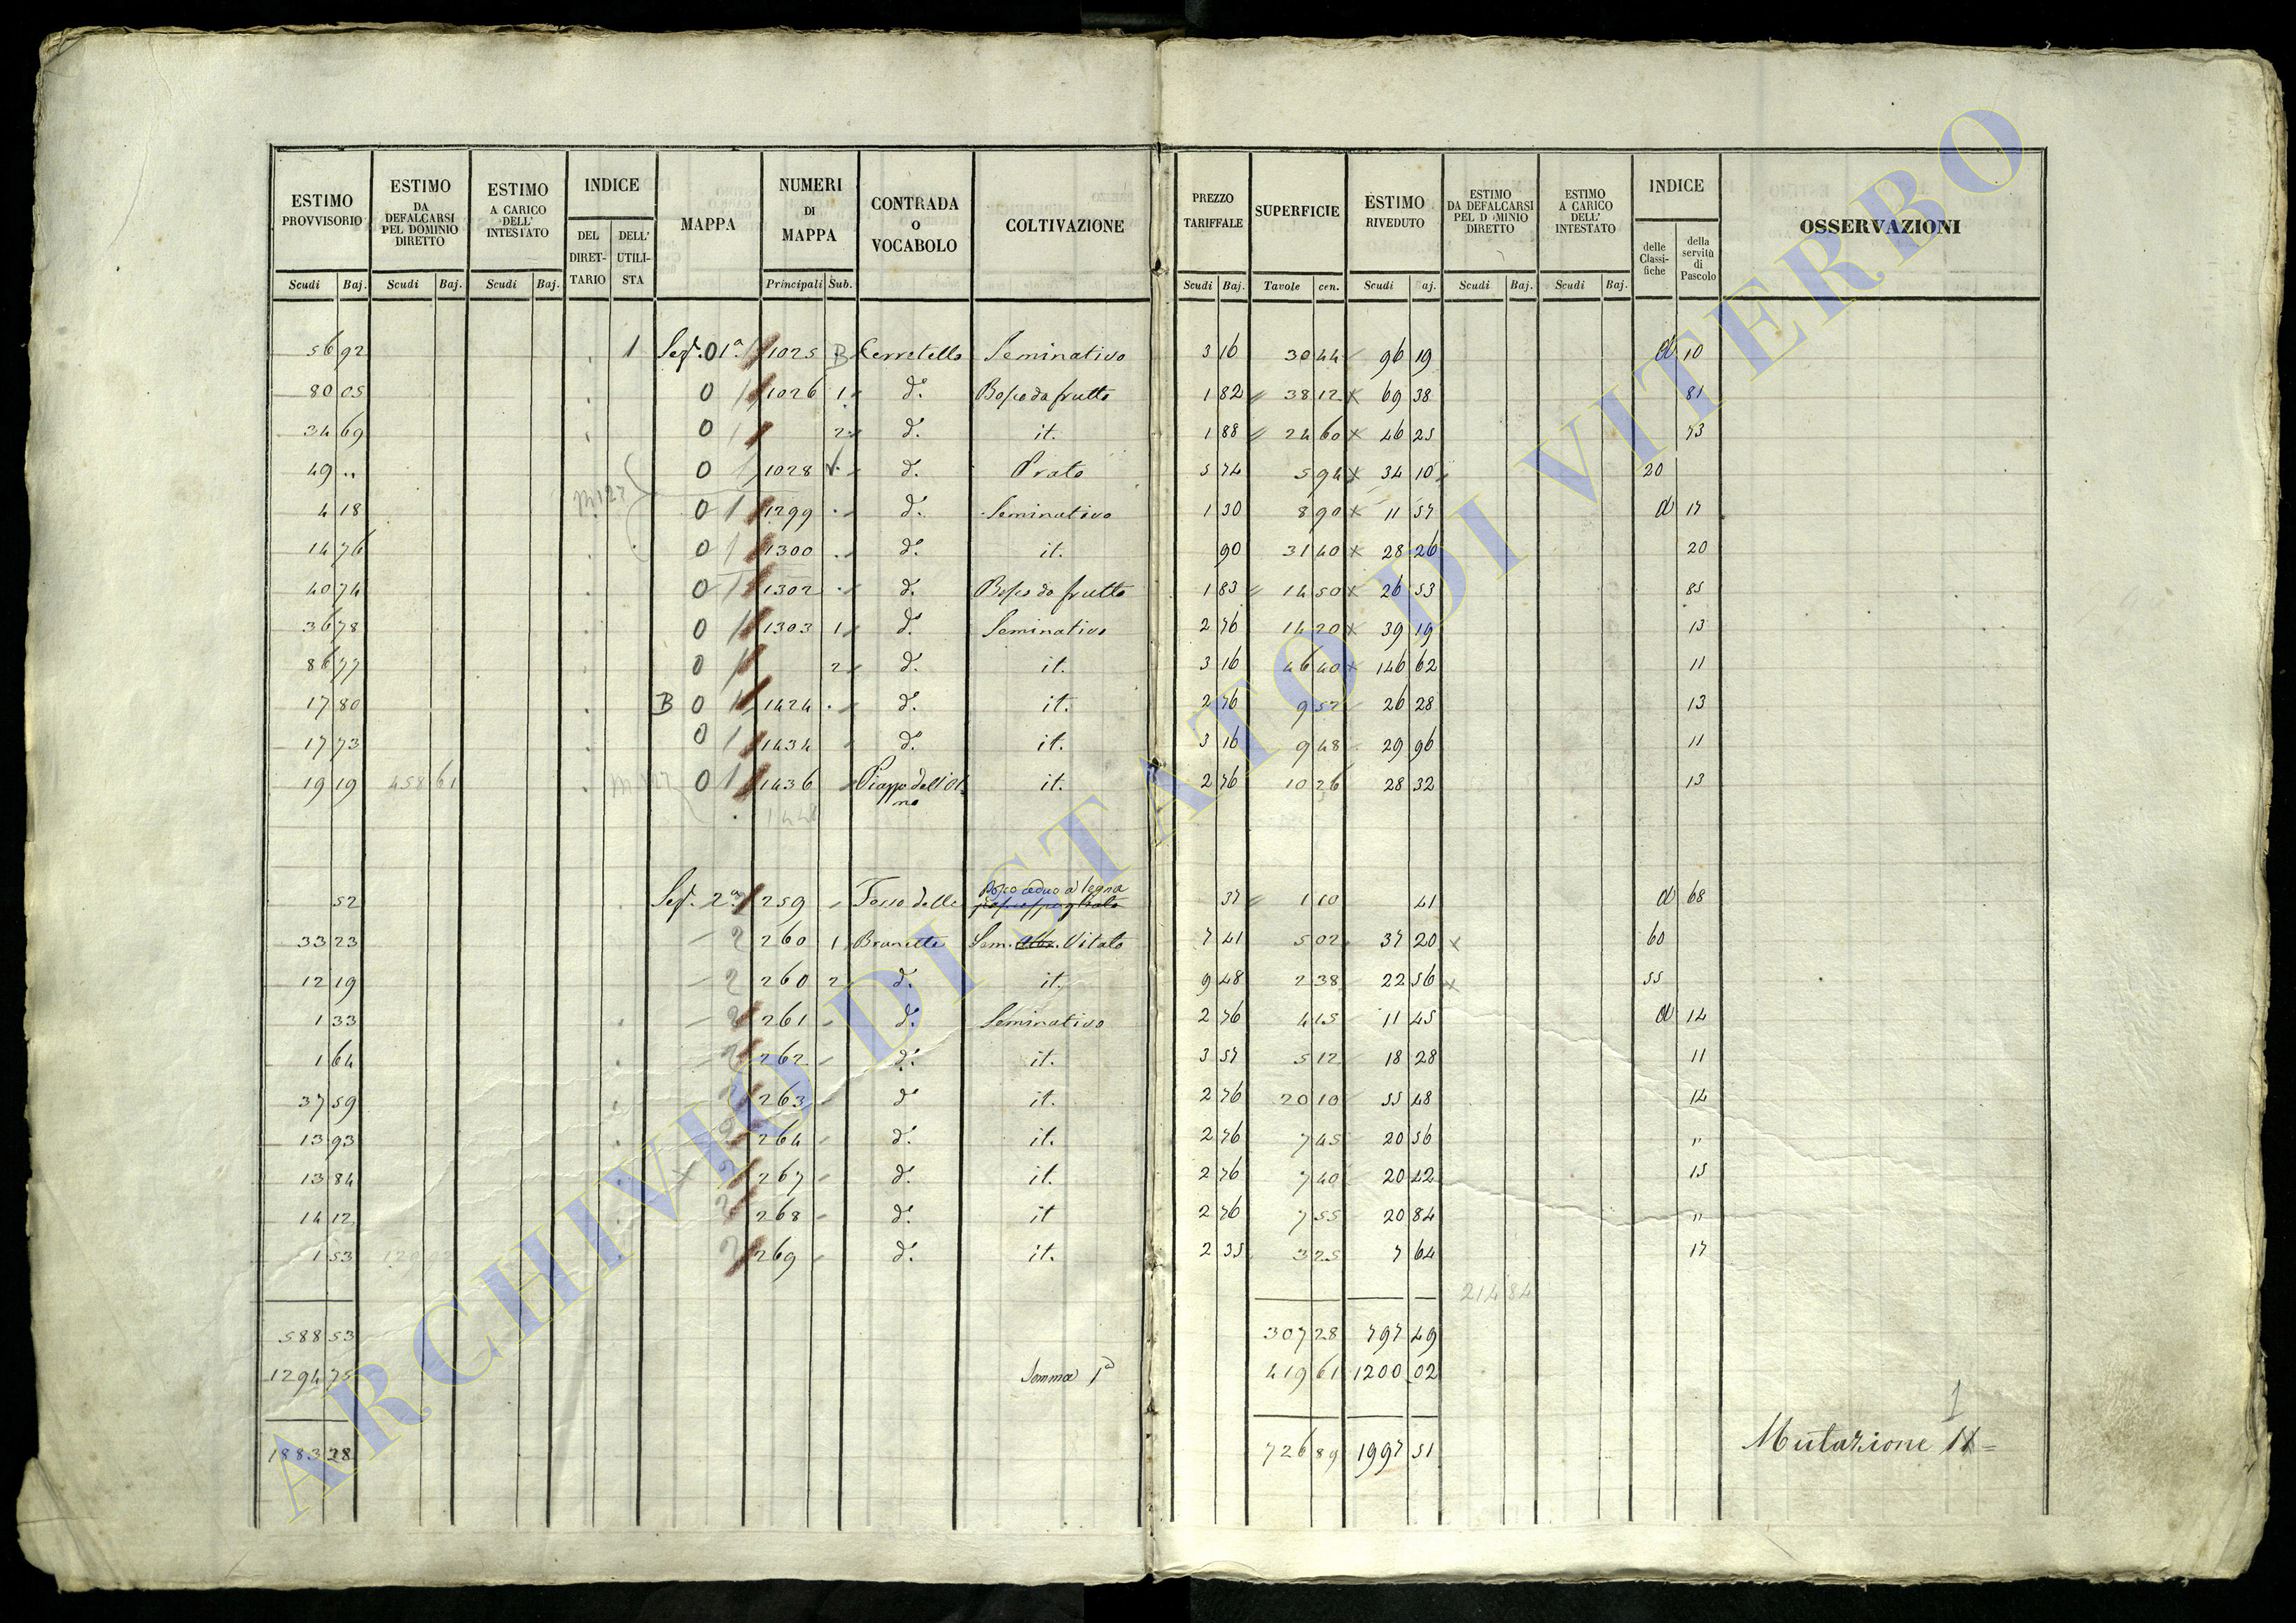 ESTIMO PROVVISORIO ESTIMO DA DEFALCARSI PEL DOMINIO DIRETTO ESTIMO A CARICO DELL' INTESTATO INDICE DEL DIRETTARIO DELL' UTILISTA MAPPA NUMERI DI MAPPA CONTRADA o VOCABOLO COLTIVAZIONE PREZZO TARIFFALE SUPERFICIE ESTIMO RIVEDUTO ESTIMO DA DEFALCARSI PEL DOMINIO DIRETTO ESTIMO A CARICO DELL' INTESTATO INDICE delle Classifiche della servitù di Pascolo OSSERVAZIONI
Scudi Baj. Scudi Baj. Scudi Baj. Principali Sub. Scudi Baj. Tavole cen. Scudi aj. Scudi Baj. Scudi Baj.
56 92 1 Sez. 0 1a 1025 B Cerretello Seminativo 3 16 30 44 96 19 d 10
80 05 0 1 1026 1 d.o Bosco da frutto 1 82 38 12 x 69 38 81
34 69 0 1 2 d.o it. 1 88 24 60 x 46 25 73
49 .. 0 1 1028 d.o Prato 5 74 5 94 x 34 10 20
4 18 0 1 1299 d.o Seminativo 1 30 8 90 x 11 57 d 17
14 76 0 1 1300 d.o it. 90 31 40 x 28 26 20
40 74 0 1 1302 d.o Bosco da frutto 1 83 14 50 x 26 53 85
36 78 0 1 1303 1 d.o Seminativo 2 76 14 20 x 39 19 13
86 77 0 1 2 d.o it. 3 16 46 40 x 146 62 11
17 80 B 0 1 1424 d.o it. 2 76 9 52 26 28 13
17 73 0 1 1434 d.o it. 3 16 9 48 29 96 11
19 19 458 61 0 1 1436 it. 2 76 10 26 28 32 13
52 Sez. 2a 259 Fosso delle Bosco ceduo a legna 37 1 10 41 d 68
33 23 2 260 1 Brunette Sem. Vitato 7 41 5 02 37 20 x 60
12 19 2 260 2 d.o it. 9 48 2 38 22 56 x 55
1 33 2 261 d.o Seminativo 2 76 4 15 11 45 d 14
1 64 2 262 d.o it. 3 57 5 12 18 28 11
37 59 2 263 d.o it. 2 76 20 10 55 48 14
13 93 2 264 d.o it. 2 76 7 45 20 56 "
13 84 x 2 267 d.o it. 2 76 7 40 20 42 15
14 12 2 268 d.o it 2 76 7 55 20 84 "
1 53 2 269 d.o it. 2 35 3 25 7 64 17
214 84
588 53 307 28 797 49
1294 75 Somma 1a 419 61 1200 02
1883 28 726 89 1997 51 Mutazione 1
ARCHIVIO DI STATO DI VITERBO